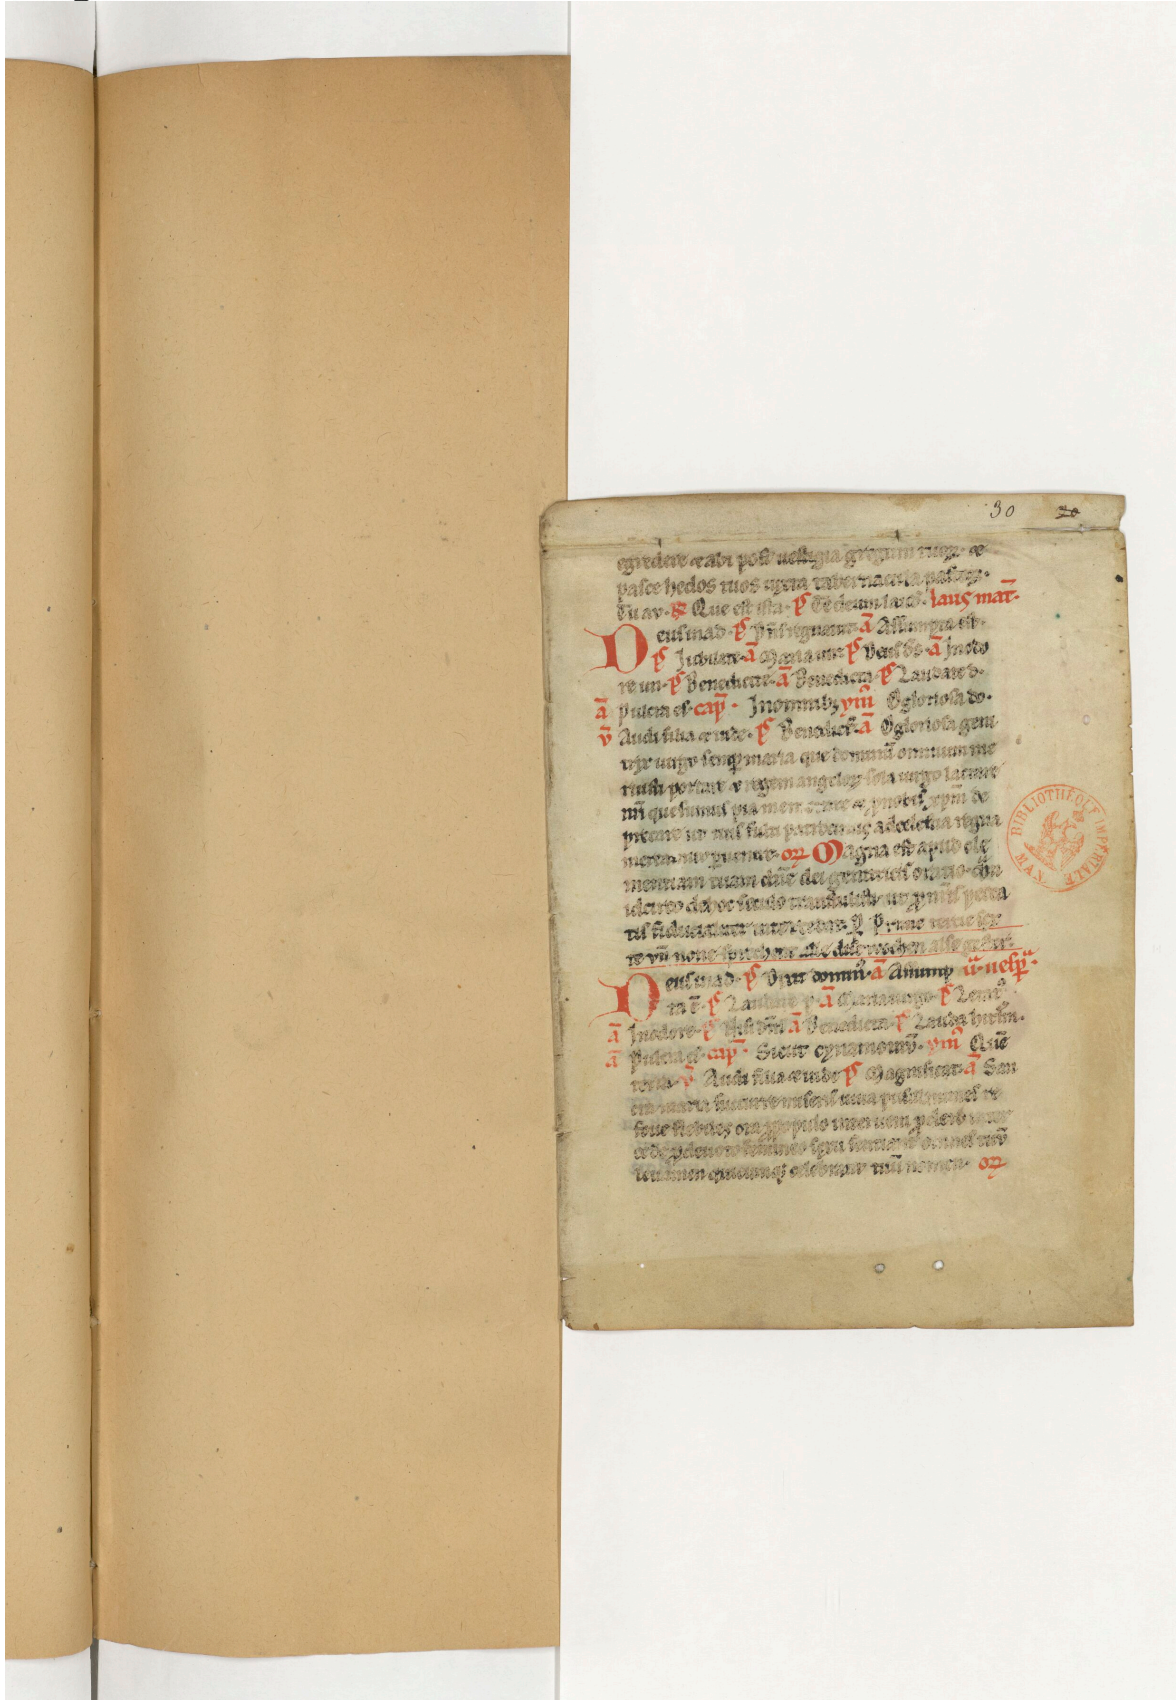 30 20
egredere et abi post uestigia gregum tuoꝝ. et
pasce hedos tuos iuxta tabernacula pastoꝝ.
Tu au. Que est ista. p̅s Te deum laud. laus mat̅.
Deus in ad. p̅s Dn̅s regnauit. a̅ Assumpta est.
p̅s Jubilate. a̅ Maria uir. p̅s Deus ds̅. a̅ Jn odo
re un. p̅s Benedicite. a̅ Benedicta. p̅s Laudate d.
a̅ Pulcra es. cap̅. Jn omnibꝫ ym̅ O gloriosa do.
v̅ Audi filia et uide. p̅s Benedict̅. a̅ O gloriosa geni
trix uirgo semꝑ maria que dominū omnium me
ruisti portare et regem angeloꝝ sola uirgo lactare
nr̅i quesumus pia memorare et ꝓ nobis xp̅m de
precare ut tuis fulti patrociniis ad celestia regna
mereamur ꝑuenire. oꝝ Magna est apud cle
mentiam tuam dn̅e dei genitricis oratio. quā
idcirco de hoc seculo transtulisti ut ꝓ nr̅is pecca
tis fiducialiter intercedat. Prime tercie sex
te vn̄ none
Deus in ad. p̅s Dixit domin̅. a̅ Assump u̅. uesꝑa.
ta ē. p̅s Laudate p. a̅ Maria uirgo. p̅s Letat̅
a̅ Jn odore. p̅s Nisi dn̅s a̅ Benedicta. p̅s Lauda hirlm̅.
a̅ Pulcra es. cap̅. Sicut cynamomū. ym̅ Quē
terra. v̅ Audi filia et uide p̅s Magnificat. a̅ San
cta maria succurre miseris iuua pusillanimes re
foue flebiles ora ꝓ populo interueni ꝓ clero inter
cede ꝓ deuoto femineo sexu sentiant omnes tuū
leuamen quicumqꝫ celebrant tuū nomen. oꝝ
BIBLIOTHÈQUE IMPÉRIALE MAN.